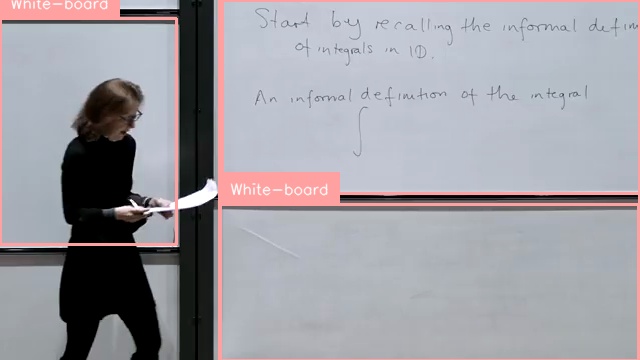 White-board
Start by recalling the informal
of integrals in 1D.
An informal definition of the integral
∫
White-board